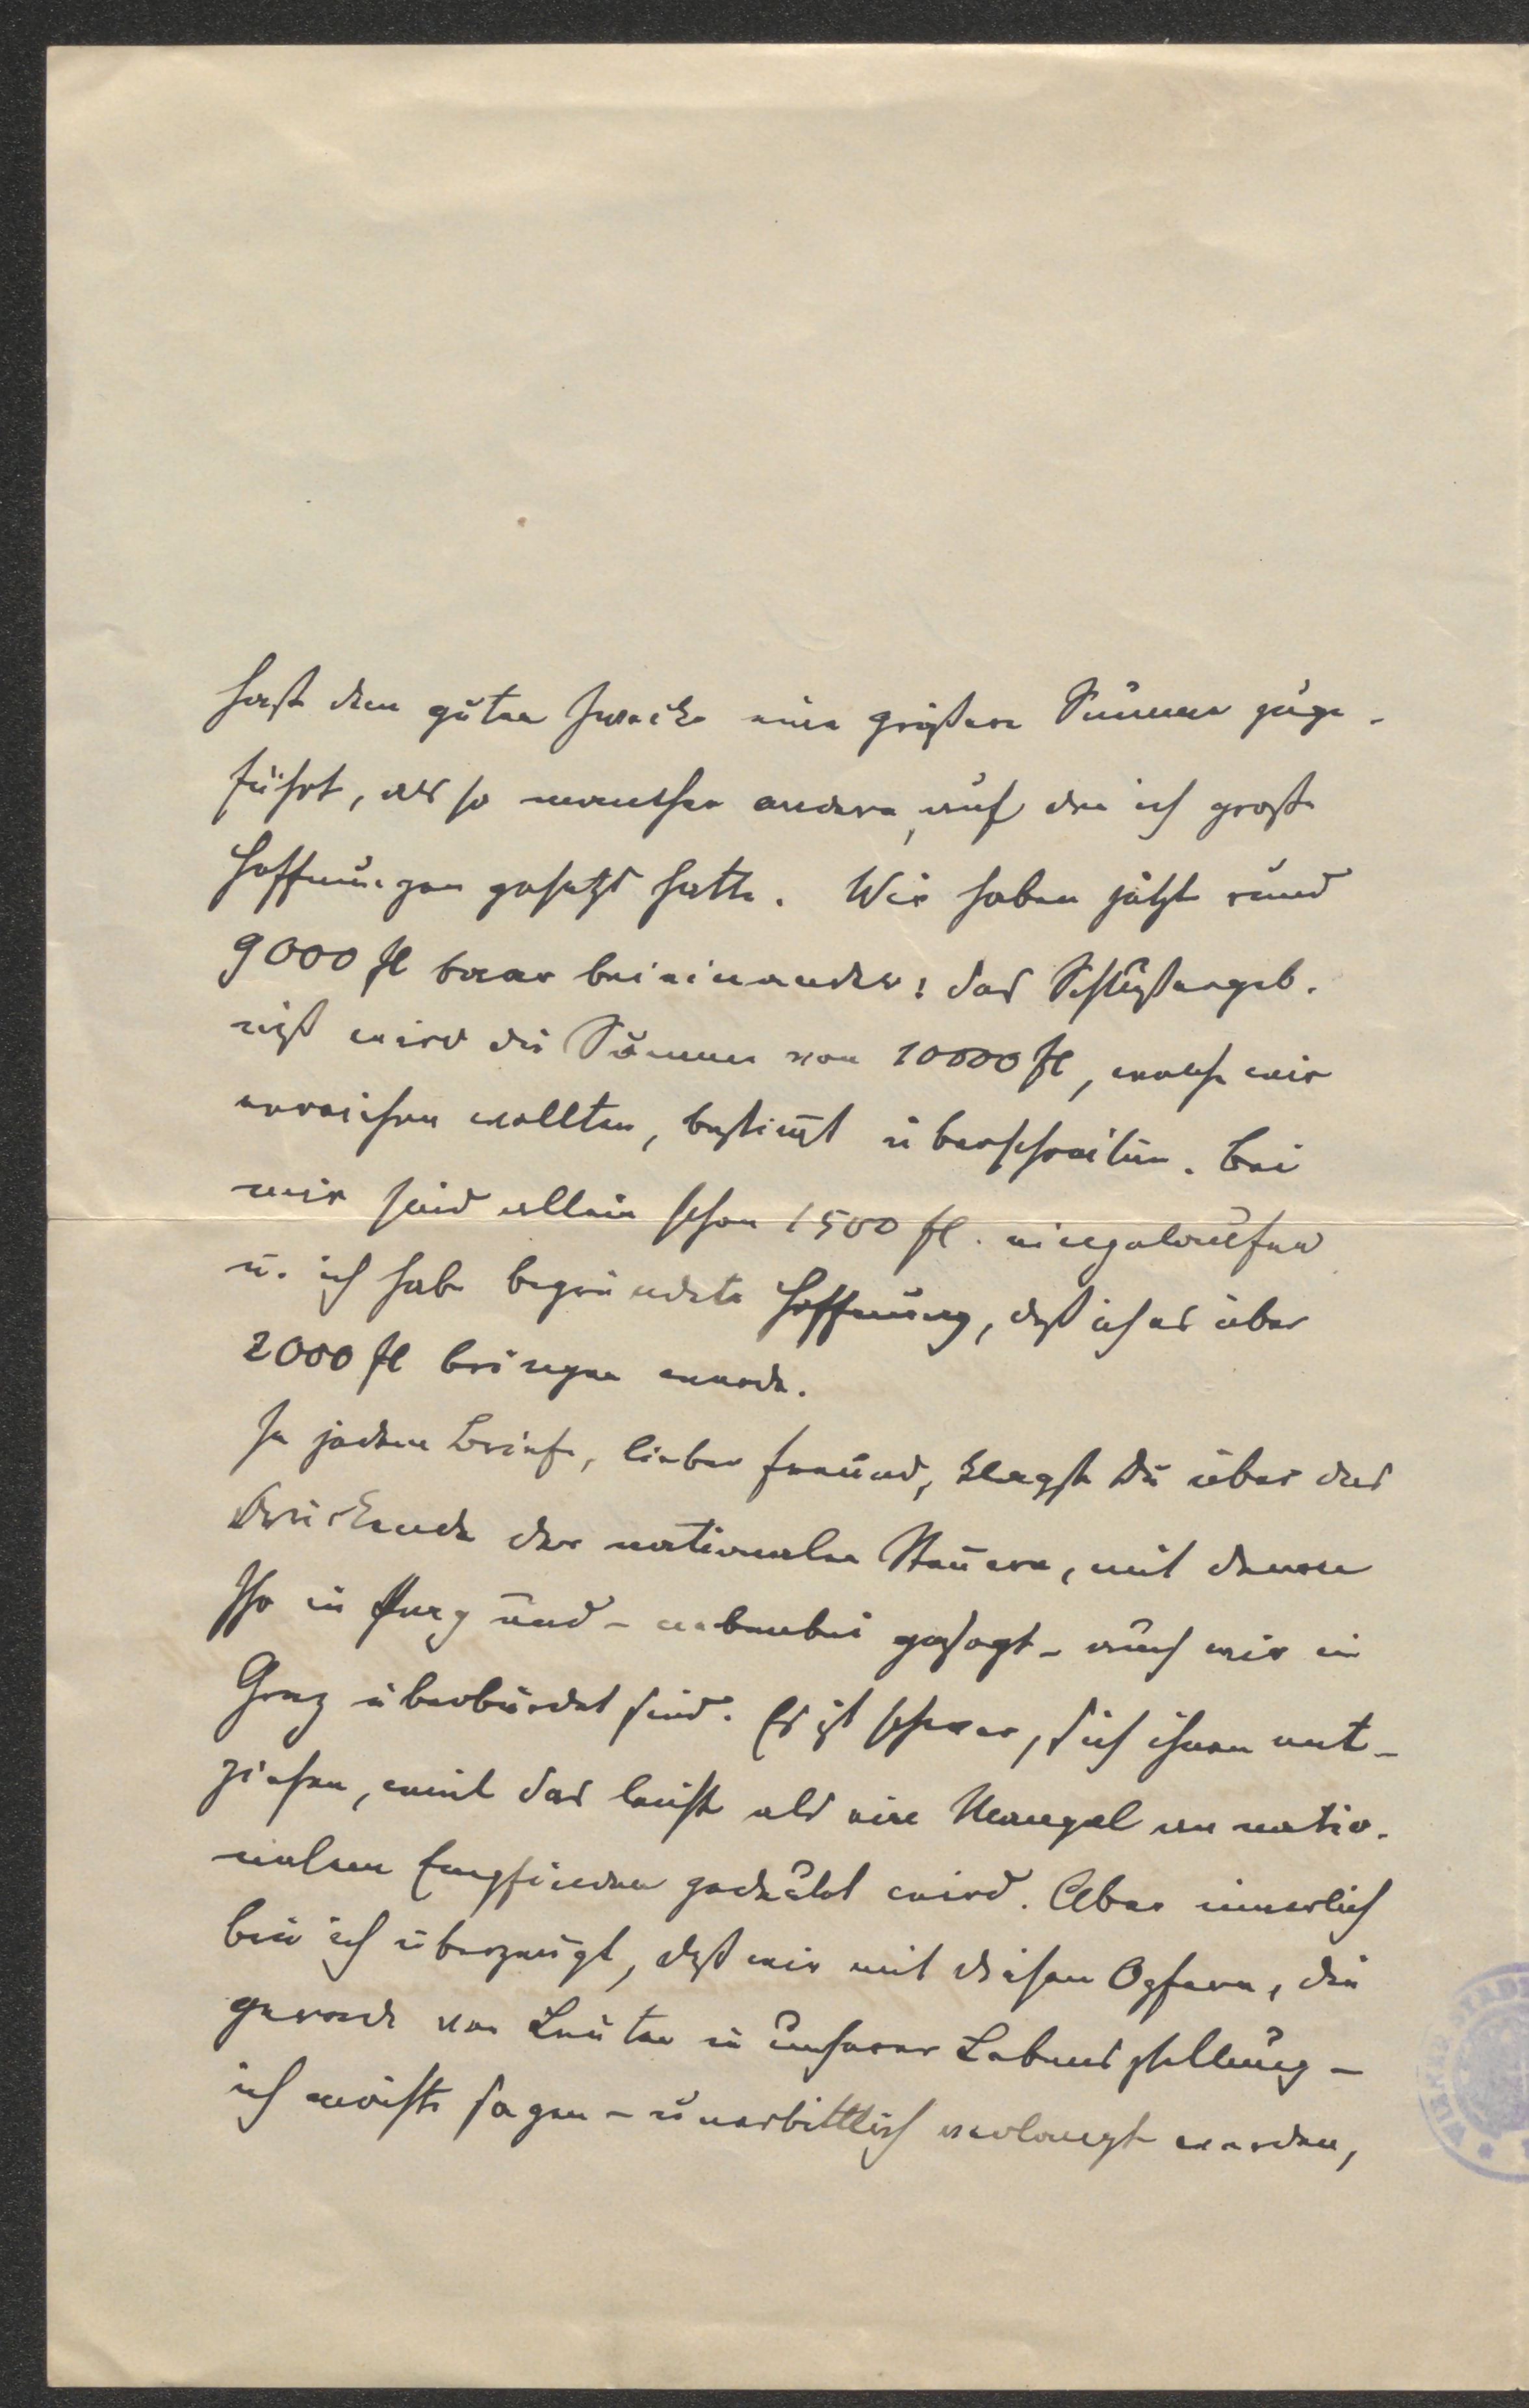 hast dem guten Zwecke eine größere Summe zuge-
führt, als so mancher andere, auf den ich große
Hoffnungen gesetzt hatte. Wir haben jetzt rund
9000 fl baar beieinander; das Schlußergeb-
niß wird die Summe von 10000 fl, welche wir
erreichen wollten, bestimt überschreiten. Bei
mir sind allein schon 1500 fl. eingelaufen
u. ich habe begründete Hoffnung, daß ich es über
2000 fl bringen werde.
In jedem Briefe, lieber Freund, klagst Du über das
Drückende der nationalen Steuern, mit denen
Ihr in Prag und - nebenbei gesagt - auch wir in
Graz überbürdet sind. Es ist schwer, sich ihnen ent-
ziehen, weil das leicht als ein Mangel an natio-
nalem Empfinden gedeutet wird. Aber innerlich
bin ich überzeugt, daß wir mit diesen Opfern, die
gerade von Leuten in unserer Lebensstellung -
ich möchte sagen - unerbittlich verlangt werden,